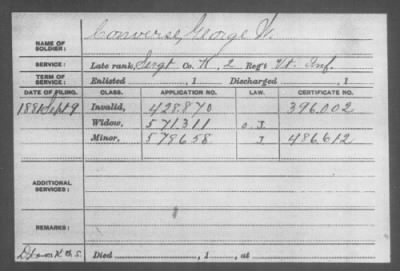 Converse, George W.
NAME OF SOLDIER:
SERVICE: Late rank, Sergt Co. K, 2 Reg't Vt. Inf.
TERM OF SERVICE: Enlisted , 1 Discharged , 1
DATE OF FILING. CLASS. APPLICATION NO. LAW. CERTIFICATE NO.
1881 Sept 9 Invalid, 428870 396.002
Widow, 571.311 o.J.
Minor, 579658 J 486.612
ADDITIONAL SERVICES:
REMARKS:
Died , 1 , at